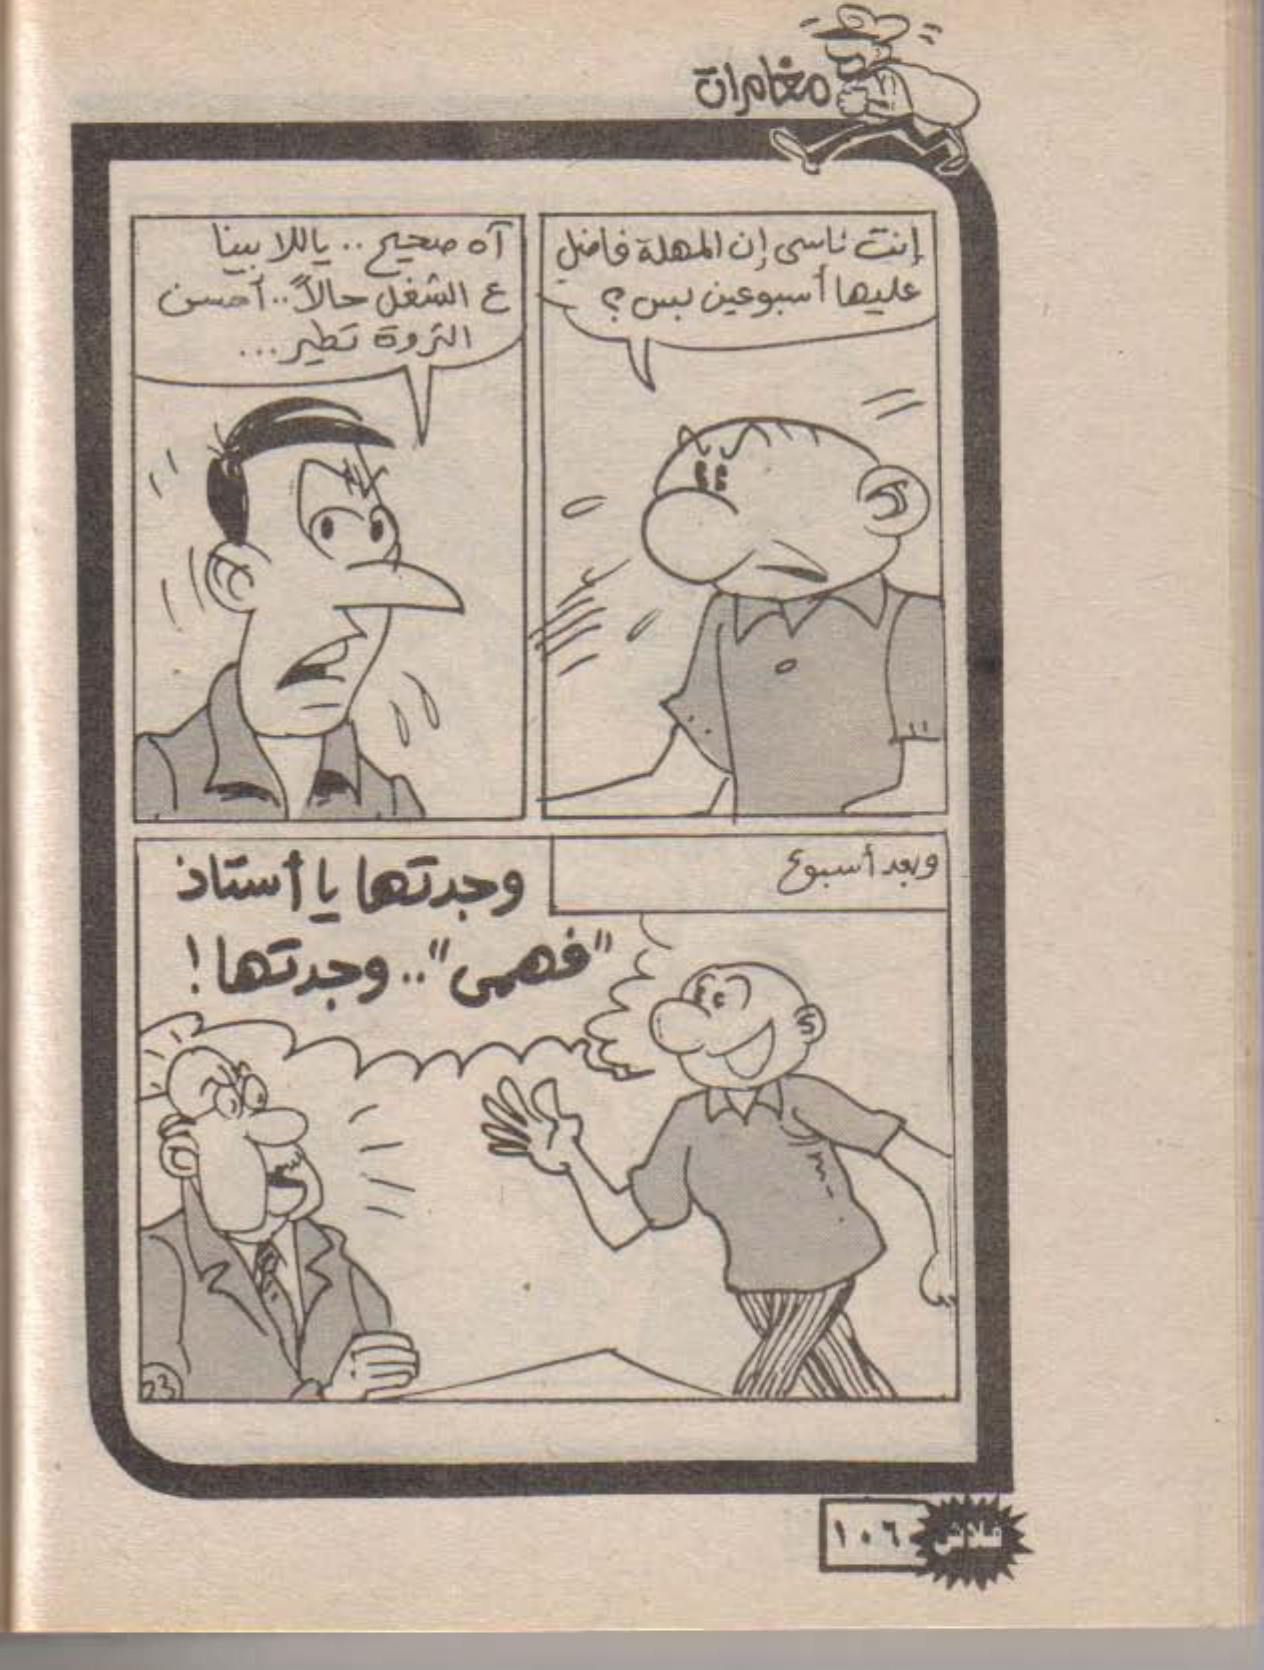 مغامرات
إنت ناسى إن المهلة فاضل
عليها أسبوعين بس؟
آه صحيح .. ياللا بينا
ع الشغل حالاً .. أحسن
الثروة تطير ...
وبعد أسبوع
وجدتها يا أستاذ
"فهمى" .. وجدتها!
23
فلاش
١٠٦